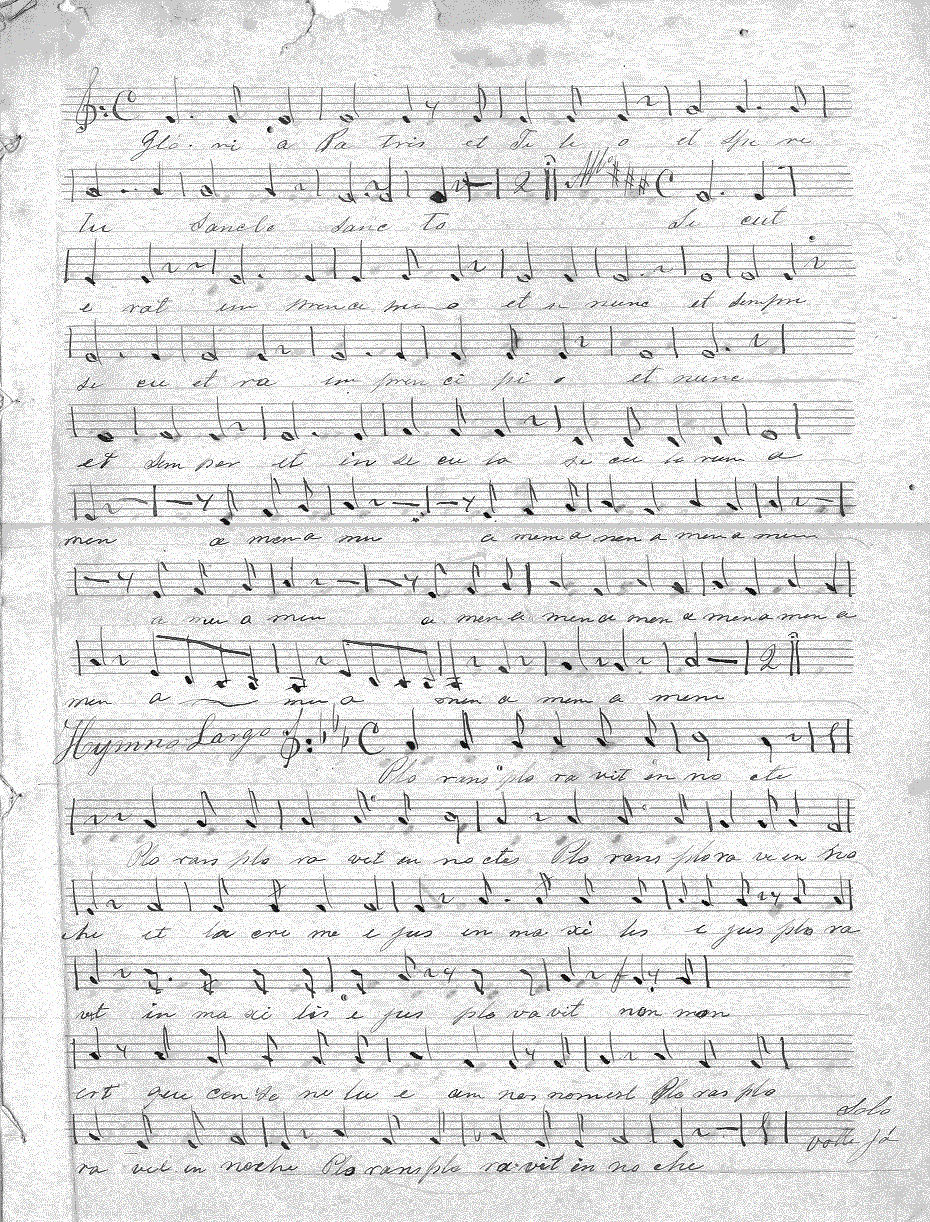 Glo. ri a Pa tris et Fi li o et Spi re
tu Sancto sanc to Si cut
e rat im princi pi o et a nunc et Sempre
si cu et ra im prin ci pi o et nunc
et Sem per et in se cu la se cu lo rum a
men a mena mu a mema nena mena men
a meu a meu a mena mena mena mena mena
men a meu a men a mem a mem
2
2
Hymno Largo
Plo rans plo ra vit in no cte
Plo rans plo ra vit in noctes Plo rans plora vi in no
che et la cri me e jus in ma xi lis e jus plo ra
vit in ma xi lis e jus plo ra vit non non
est qui con so ne tu e am nes Plo ras plo
Solo
volte já
ra vit in noche Plo rans plo ra vit in no che